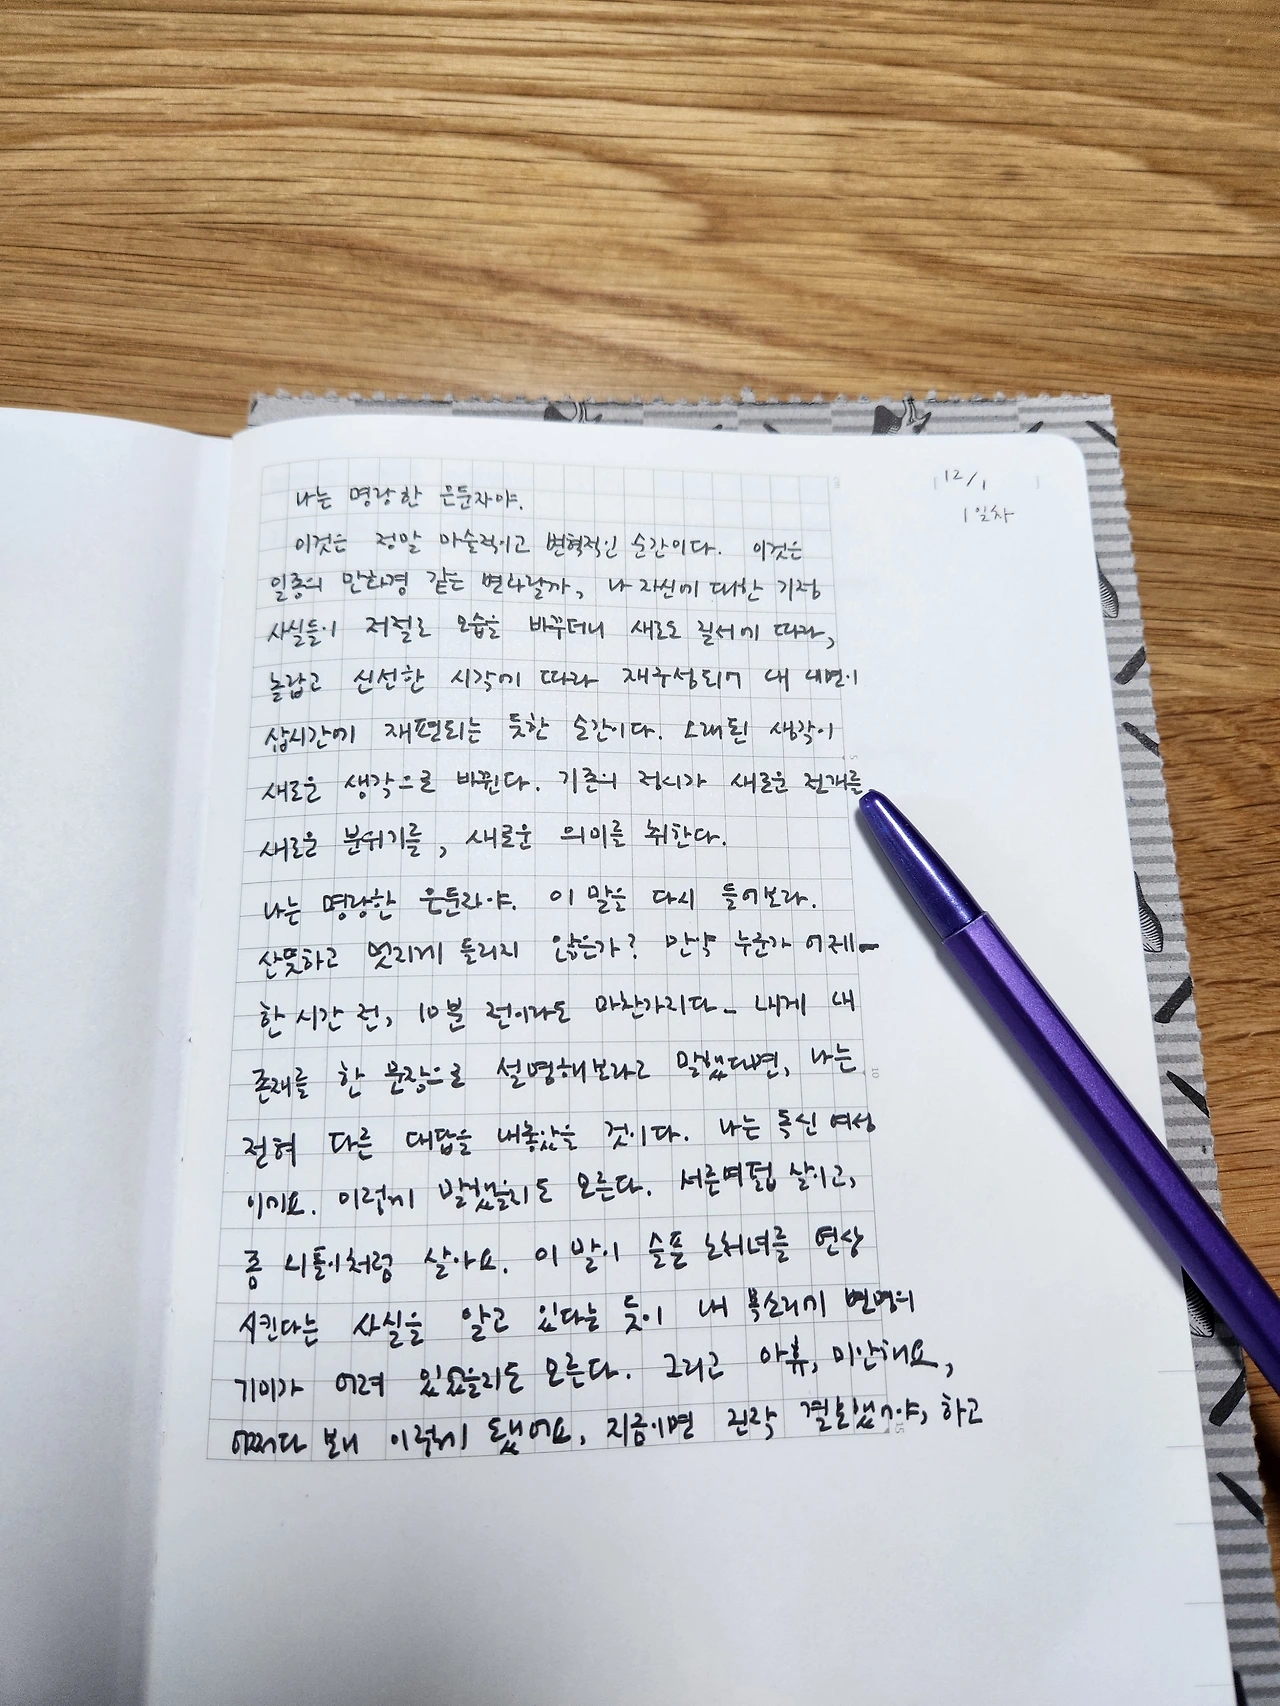 12/1
1일차
나는 명랑한 은둔자야.
이것은 정말 마술적이고 변혁적인 순간이다. 이것은
일종의 만화경 같은 변화랄까, 나 자신에 대한 기정
사실들이 저절로 모습을 바꾸더니 새로운 질서에 따라,
놀랍고 신선한 시각에 따라 재구성되어 내 내면이
삽시간에 재편되는 듯한 순간이다. 오래된 생각이
새로운 생각으로 바뀐다. 기존의 정서가 새로운 전개를
새로운 분위기를, 새로운 의미를 취한다.
나는 명랑한 은둔자야. 이 말을 다시 들어보라.
산뜻하고 멋지게 들리지 않은가? 만약 누군가 어제-
한 시간 전, 10분 전이라도 마찬가지다- 내게 내
존재를 한 문장으로 설명해보라고 말했다면, 나는
전혀 다른 대답을 내놓았을 것이다. 나는 독신 여성
이지요. 이렇게 말했을지도 모른다. 서른여덟 살이고,
좀 외톨이처럼 살아요. 이 말이 슬픈 노처녀를 연상
시킨다는 사실을 알고 있다는 듯이 내 목소리에 변명의
기미가 어려 있었을지도 모른다. 그리고 아휴, 미안해요,
어쩌다 보니 이렇게 됐어요, 지금이면 진작 결혼했어야, 하고